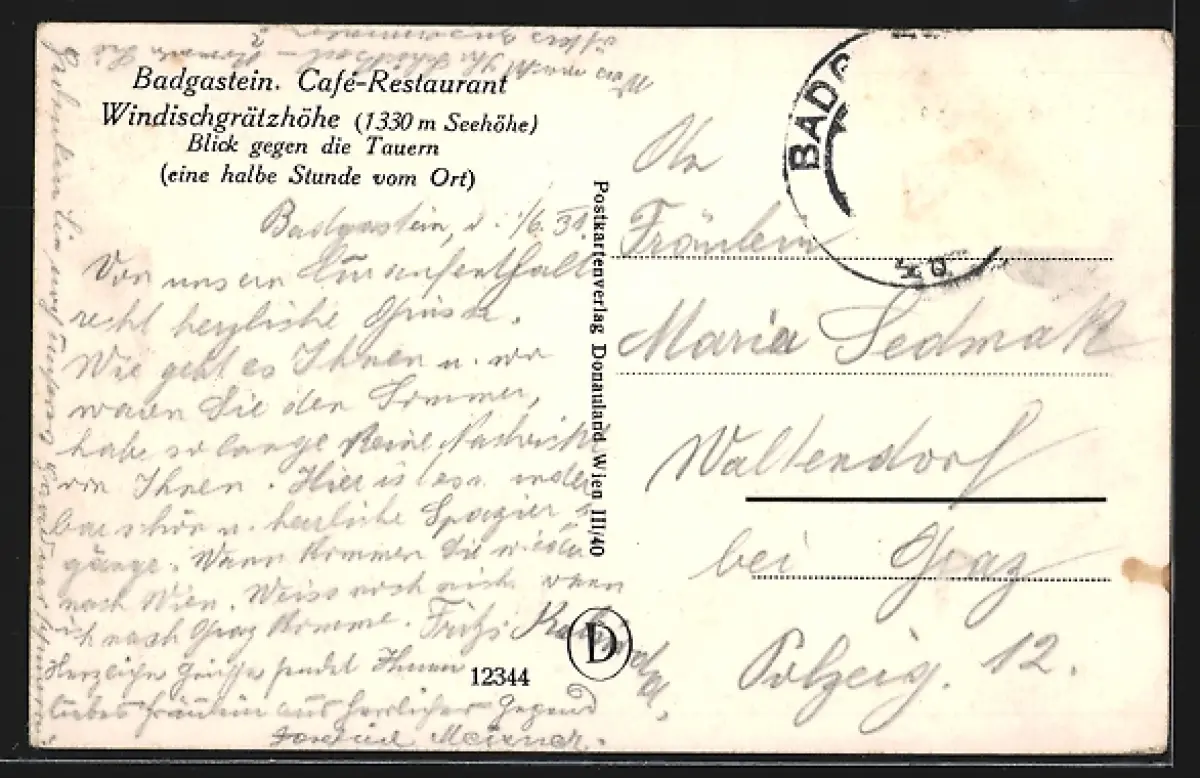 Badgastein. Café-Restaurant
Windischgrätzhöhe (1330 m Seehöhe)
Blick gegen die Tauern
(eine halbe Stunde vom Ort)
Badgastein, d. 1/6. 38.
Von unserm Kuraufenthalt
recht herzliche Grüsse.
Wie geht es Ihnen u. wo
waren Sie den Sommer,
habe so lange keine Nachricht
von Ihnen. Hier ist es wunder
bar schön u. herrliche Spazier
gänge. Wann kommen Sie wieder
nach Wien. Weiss noch nicht wann
ich nach Graz komme. Fritz
Herzliche Grüsse sendet Ihnen
liebes Fräulein aus herrlicher Gegend
Meixner.
12344
D
Postkartenverlag Donauland Wien III/40
BADG
An
Fräulein
Maria Sedmak
Waltendorf
bei Graz
Polzeig. 12.